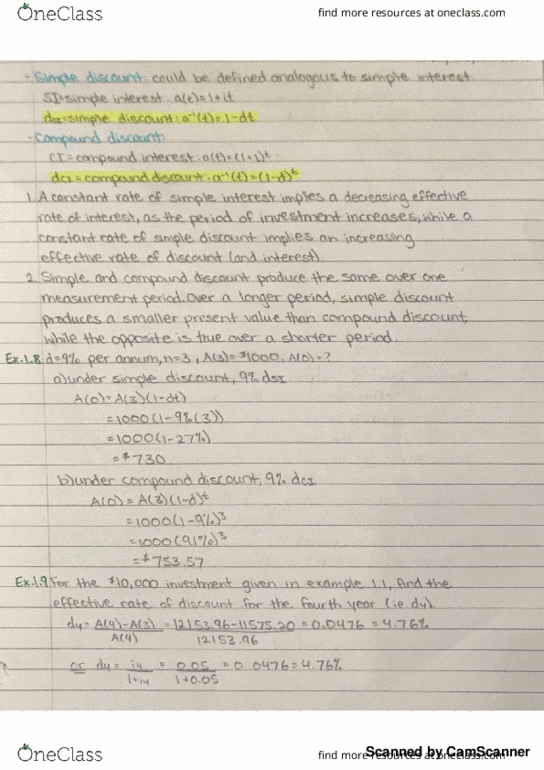 OneClass
find more resources at oneclass.com
- Simple discount: could be defined analogous to simple interest.
SI=simple interest: a(t)=1+it
dSI=simple discount: a⁻¹(t)=1-dt
- Compound discount:
CI=compound interest: a(t)=(1+i)ᵗ
dCI=compound discount: a⁻¹(t)=(1-d)ᵗ
1. A constant rate of simple interest implies a decreasing effective
rate of interest, as the period of investment increases, while a
constant rate of simple discount implies an increasing
effective rate of discount (and interest).
2. Simple and compound discount produce the same over one
measurement period. Over a longer period, simple discount
produces a smaller present value than compound discount,
while the opposite is true over a shorter period.
Ex.1.8 d=9% per annum, n=3, A(3)=$1000, A(0)=?
a) under simple discount, 9% dSI
A(0)=A(3)(1-dt)
=1000(1-9%(3))
=1000(1-27%)
=$730
b) under compound discount, 9% dCI
A(0)=A(3)(1-d)ᵗ
=1000(1-9%)³
=1000(91%)³
=$753.57
Ex.1.9 For the $10,000 investment given in example 1.1, find the
effective rate of discount for the fourth year (ie d4).
d4=A(4)-A(3)=12153.96-11575.20=0.0476=4.76%
A(4) 12153.96
or d4= i4 = 0.05 =0.0476=4.76%
1+i4 1+0.05
OneClass
find more resources at oneclass.com
Scanned by CamScanner